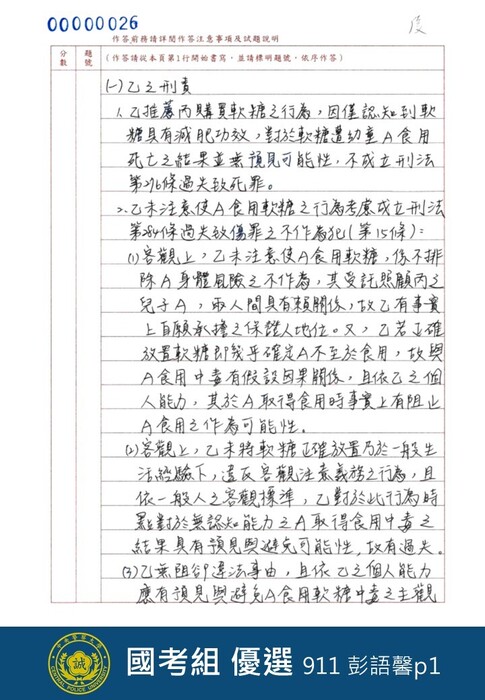 00000026
作答前務請詳閱作答注意事項及試題說明
分數
題號
(作答請從本頁第1行開始書寫，並請標明題號，依序作答)
(一)乙之刑責
1.乙推薦丙購買軟糖之行為，因僅認知到軟
糖具有減肥功效，對於軟糖遭幼童A食用
死亡之結果並無預見可能性，不成立刑法
第276條過失致死罪。
2.乙未注意使A食用軟糖之行為考慮成立刑法
第284條過失致傷罪之不作為犯(第15條)：
(1)客觀上，乙未注意使A食用軟糖，係不排
除A身體風險之不作為，其受託照顧丙之
兒子A，兩人間具有賴關係，故乙有事實
上自願承擔之保證人地位。又，乙若正確
放置軟糖即幾乎確定A不至於食用，故與
A食用中毒有假設因果關係，且依乙之個
人能力，其於A取得食用時事實上有阻止
A食用之作為可能性。
(2)客觀上，乙未將軟糖正確放置乃於一般生
活經驗下，違反客觀注意義務之行為，且
依一般人之客觀標準，乙對於此行為時
點對於無認知能力之A取得食用中毒之
結果具有預見與避免可能性，故有過失。
(3)乙無阻卻違法事由，且依乙之個人能力
應有預見與避免A食用軟糖中毒之主觀
誠
CENTRAL POLICE UNIVERSITY
國考組 優選 911 彭語馨p1